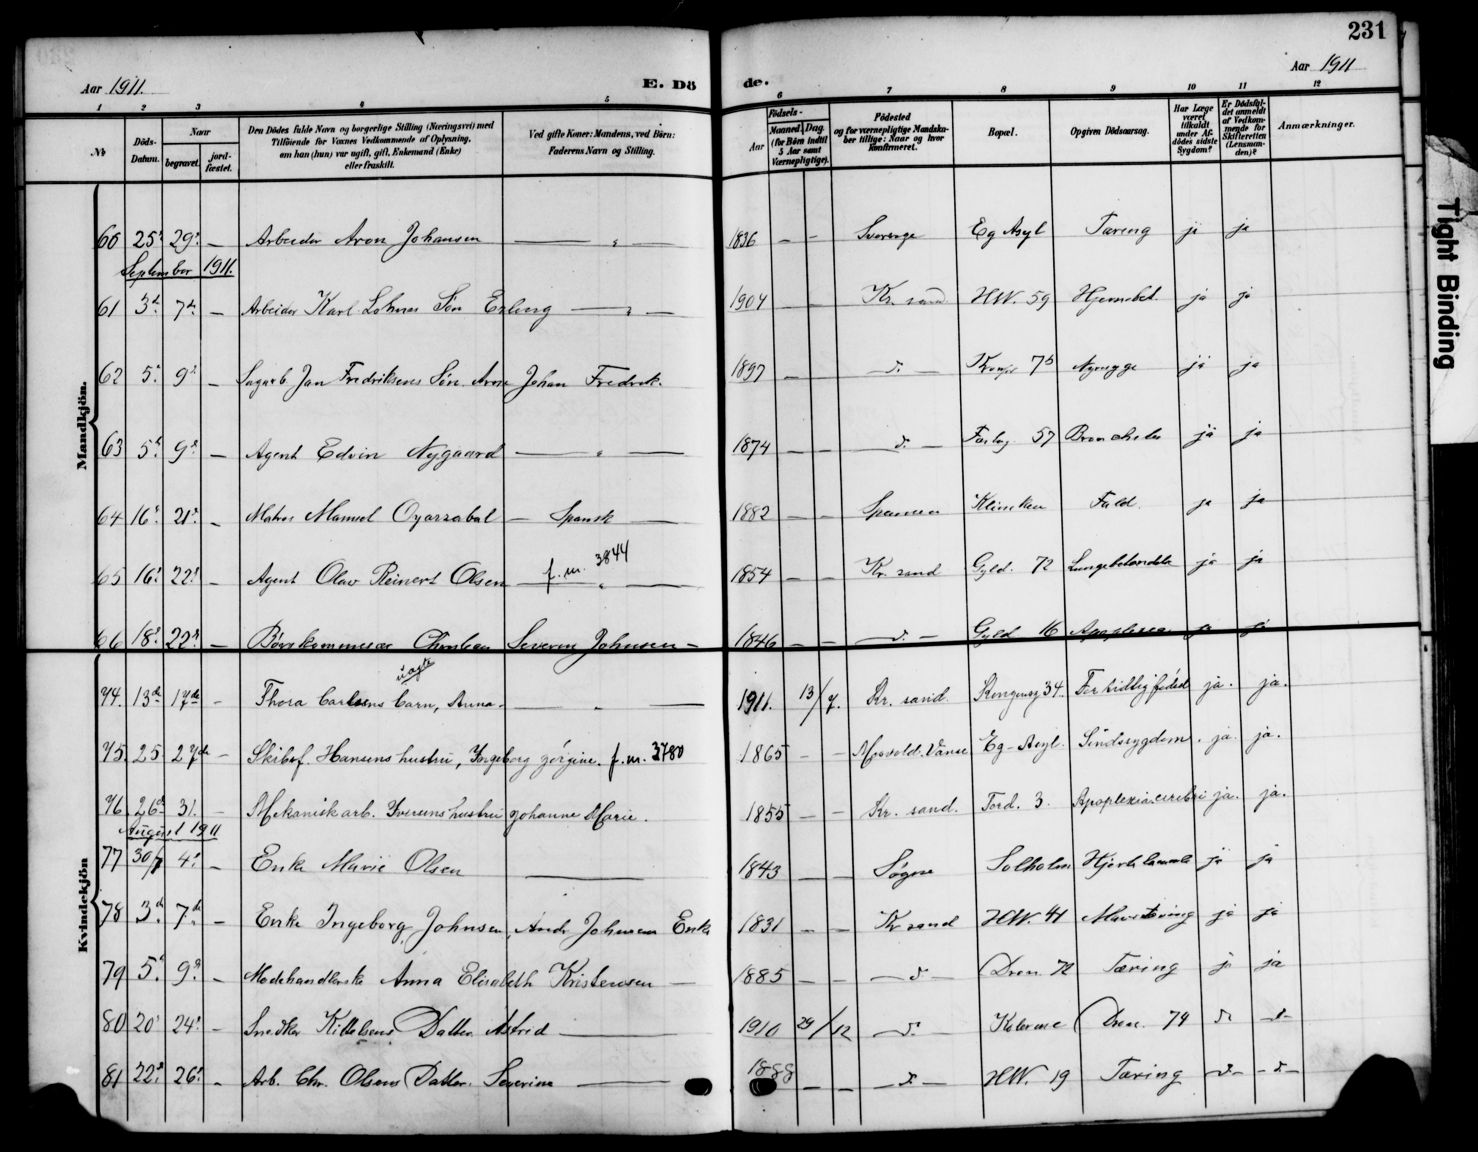 231
Aar 1911. E. Dö
de. Aar 1911
1 2 3 4 5
6 7 8 9 10 11 12
No
Döds-Datum.
Naar
begravet.
jord-fæstet.
Den Dødes fulde Navn og borgerlige Stilling (Næringsvei) med
Tilføiende for Voxnes Vedkommende af Oplysning,
om han (hun) var ugift, gift, Enkemand (Enke)
eller fraskilt.
Ved gifte Koner: Mandens, ved Börn:
Faderens Navn og Stilling.
Födsels-
Aar
Maaned. Dag.
(for Börn indtil
5 Aar samt
Værnepligtige).
Födested
og for værnepligtige Mandska-
ber tillige: Naar og hvor
konfirmeret.
Bopæl.
Opgiven Dödsaarsag.
Har Læge
været
tilkaldt
under Af-
dödes sidste
Sygdom?
Er Dödsfal-
det anmeldt
af Vedkom-
mende for
Skifteretten
(Lensman-
den)?
Anmærkninger.
Mandkjön.
60 25. 29. — Arbeider Aron Johansen — „ — 1836 — — Sverige Eg Asyl Tæring ja ja
September 1911.
61 3. 7. — Arbeider Karl Søn Erling — „ — 1904 — — Kr. sand HW. 59 Hjernebet. ja ja
62 5. 9. — Sagarb. Jan Fredriksens Søn Arne Johan Fredrik. 1897 — — d. — 75 Nyresyge ja ja
63 5. 9. — Agent Edvin Nygaard — „ — 1874 — — d. — 57 ja ja
64 16. 21. — Matros Manuel Oyarzabal — Spansk — 1882 — — Spanien Kliniken Fald. ja ja
f. m. 3844
65 16. 22. — Agent Olav Reinert Olsen — „ — 1854 — — Kr. sand Gyld. 72 ja ja
66 18. 22. — Christian Severin Johnsen — 1846 — — d. — Gyld 16 Apoplexia ja ja
Kvindekjön
74. 13de 17de — Thora Carlsens uægte barn, Anna. — „ — 1911. 13/7. Kr. sand. Kongensg 34. For tidlig födsel ja. ja.
75. 25 27de — Skibsf. Hansens hustru, Ingeborg Jörgine. f. m. 3780 1865 — — Vanse Eg-Asyl. Sindssygdom. ja. ja.
76. 26de 31. — Mekanisk arb. Iversens hustru Johanne Marie. 1855 — — Kr. sand. Tord. 3. Apoplexia cerebri ja. ja.
August 1911
77 30/7 4. Enke Marie Olsen — 1843 — — Søgne Solholm Hjertelammelse ja ja
78 3. 7. — Enke Ingeborg Johnsen, Andr Johnsens Enke 1831 — — Kr sand HW. 41 ja ja
79 5. 9. — Modehandlerske Anna Elisabeth Kristensen — 1885 — — d — Dron 72 Tæring ja ja
80 20. 24. — Snedker Kittelsens Datter Astrid — 1910 29/12 d. Kolerine Dron. 74 d. — d —
81 22. 26. — Arb. Chr. Olsens Datter Severine — 1888 — — d. — HW. 19 Tæring — d — — d —
Tight Binding